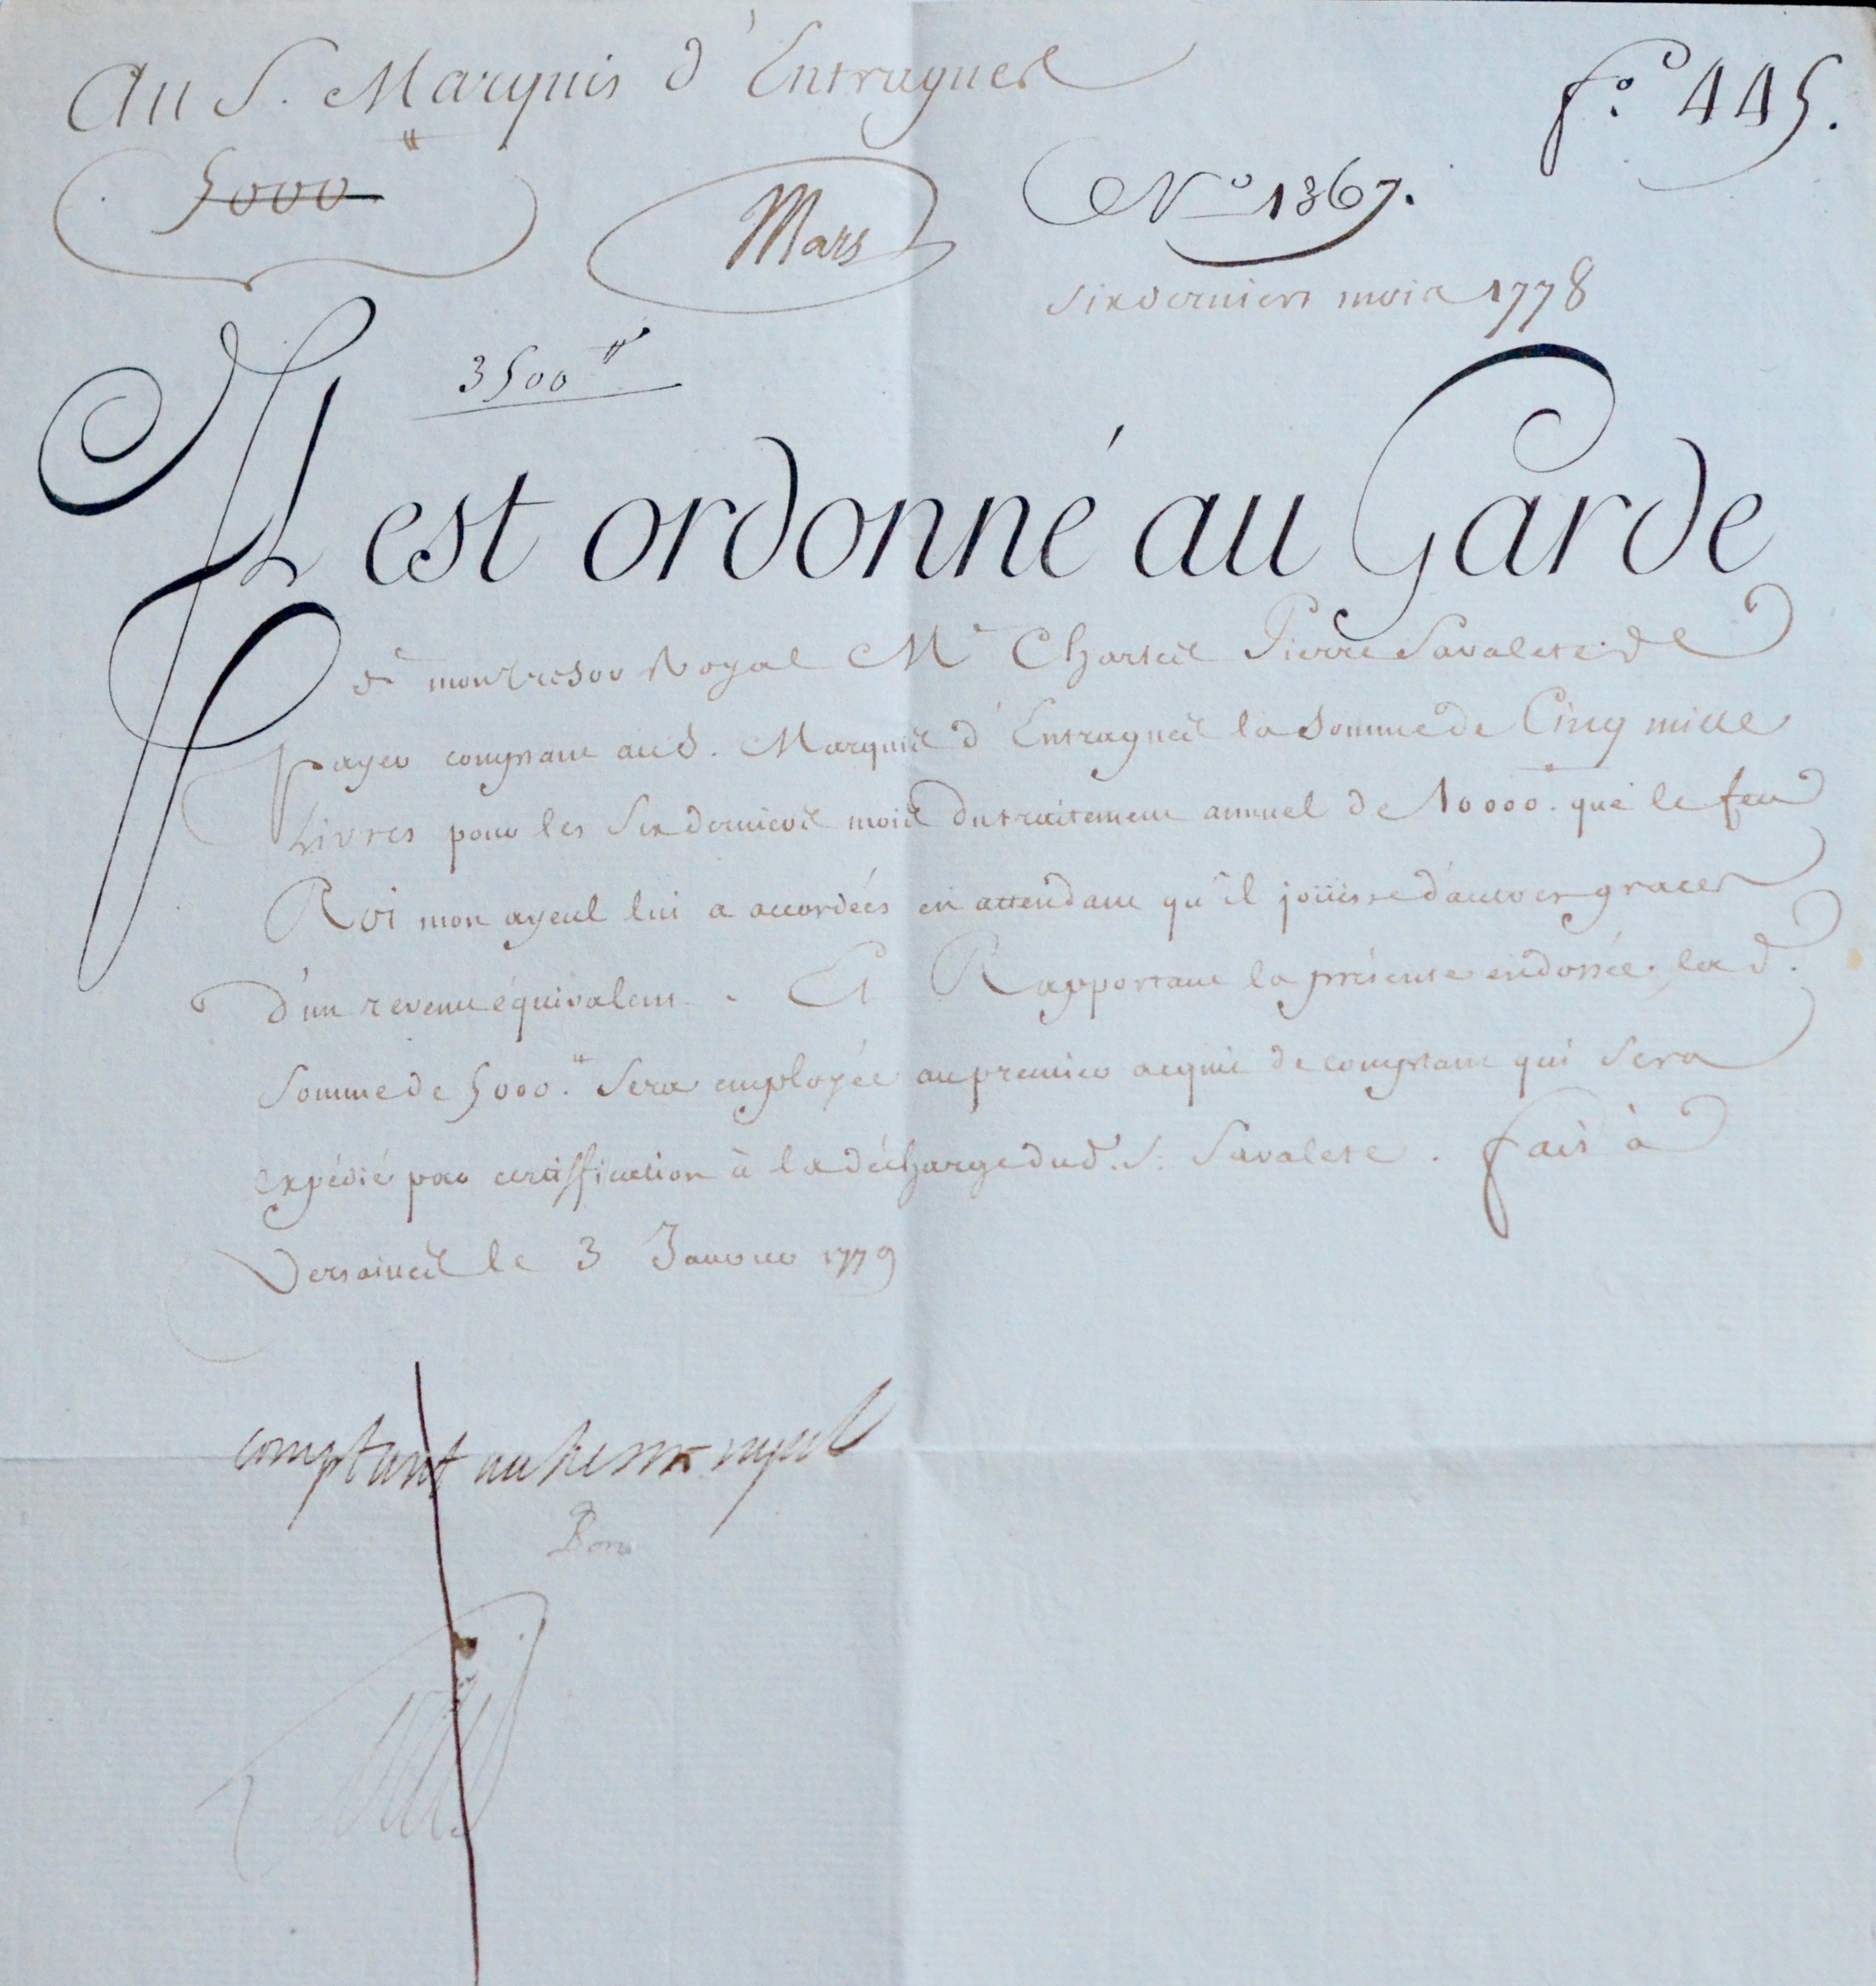 Au S. Marquis d'Entragues
fo. 445.
5000 ₶
Mars
No 1367.
Six derniers mois 1778
3500 ₶
Il est ordonné au Garde
de mon tresor Royal Me Charles Pierre Savalete de
payer comptant au S. Marquis d'Entragues la somme de Cinq mille
Livres pour les Six derniers mois du traitement annuel de 10000.₶ que le feu
Roi mon ayeul lui a accordées en attendant qu'il joüisse d'autres graces
d'un revenu équivalent. Et Rapportant la présente endossée, lad.
Somme de 5000.₶ Sera employée au premier acquit de comptant qui Sera
expédié par certiffication à la décharge dud. S. Savalete. fait à
Versailles le 3 Janvier 1779
comptant au tresor royal
Bon